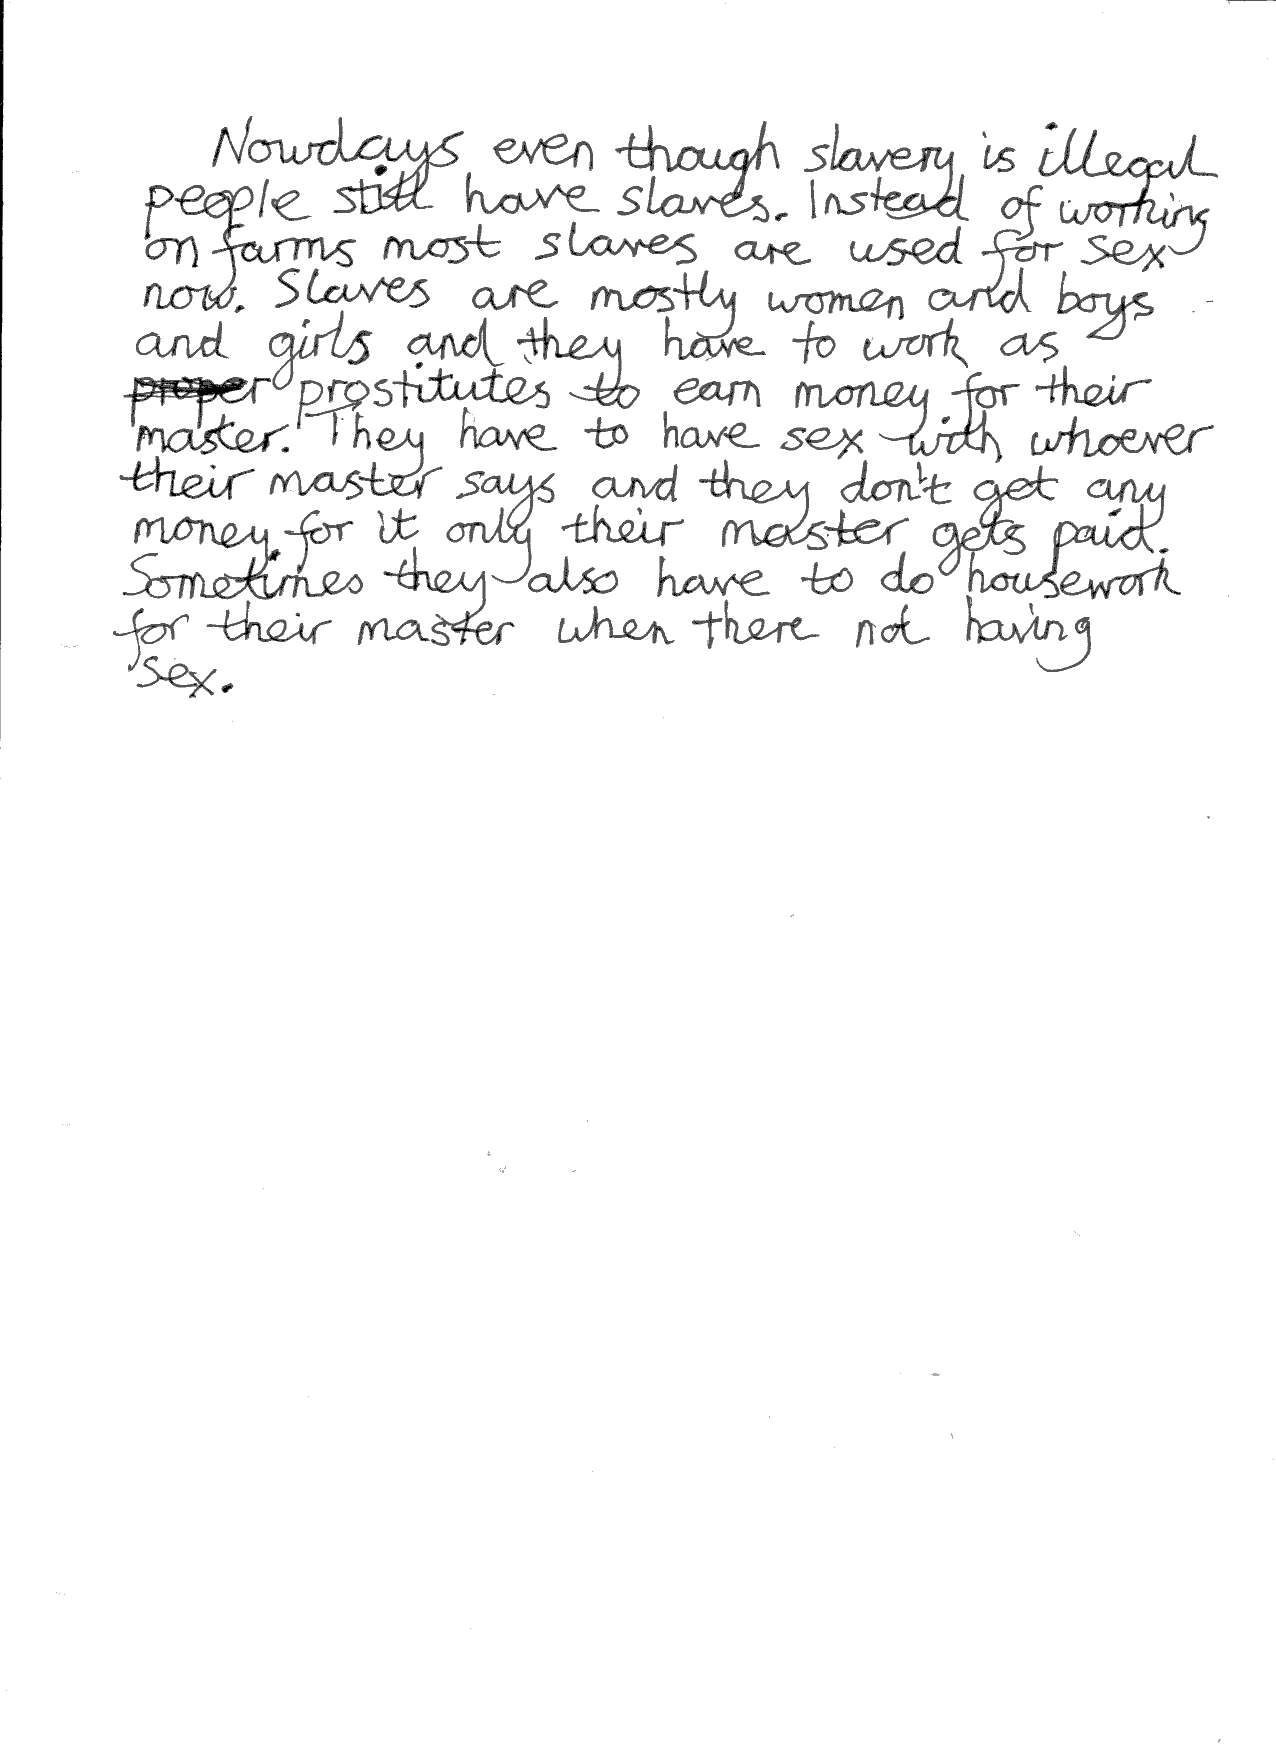 Nowdays even though slavery is illegal
people still have slaves. Instead of working
on farms most slaves are used for sex
now. Slaves are mostly women and boys
and girls and they have to work as
proper prostitutes to earn money for their
master. They have to have sex with whoever
their master says and they don't get any
money for it only their master gets paid.
Sometimes they also have to do housework
for their master when there not having
sex.